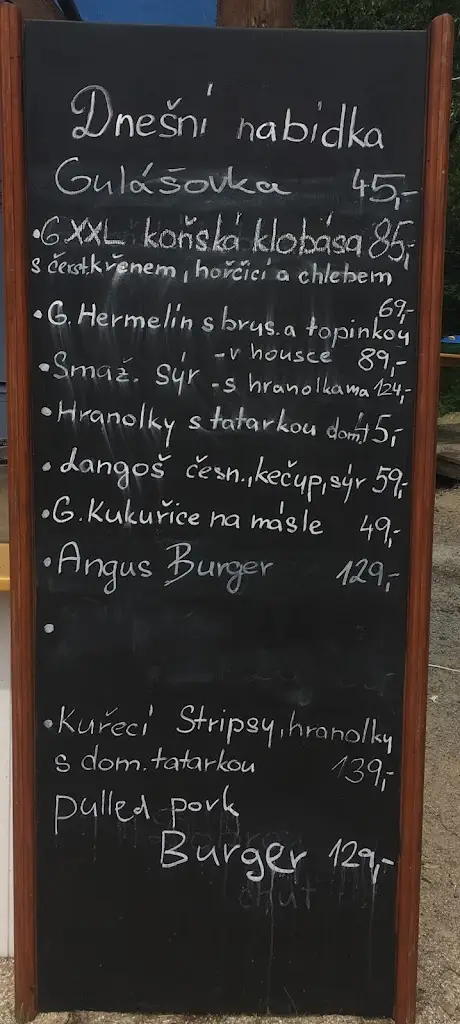 Dnešní nabídka
Gulášovka 45,-
• G XXL koňská klobása 85,-
s čerst.křenem, hořčicí a chlebem
69,-
• G. Hermelín s brus. a topinkou
• Smaž. sýr - v housce 89,-
- s hranolkama 124,-
• Hranolky s tatarkou dom. 45,-
• Langoš česn., kečup, sýr 59,-
• G. Kukuřice na másle 49,-
• Angus Burger 129,-
•
• Kuřecí Stripsy, hranolky
s dom. tatarkou 139,-
pulled pork
Burger 129,-